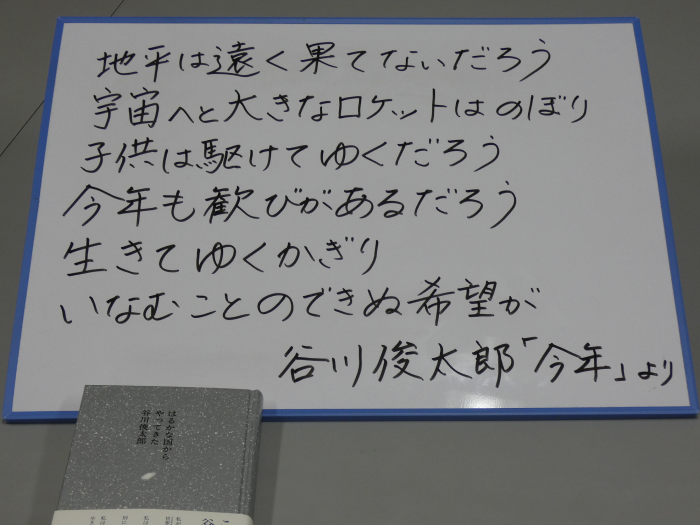 地平は遠く果てないだろう
宇宙へと大きなロケットはのぼり
子供は駆けてゆくだろう
今年も歓びがあるだろう
生きてゆくかぎり
いなむことのできぬ希望が
谷川俊太郎「今年」より
はるかな国から
やってきた
谷川俊太郎